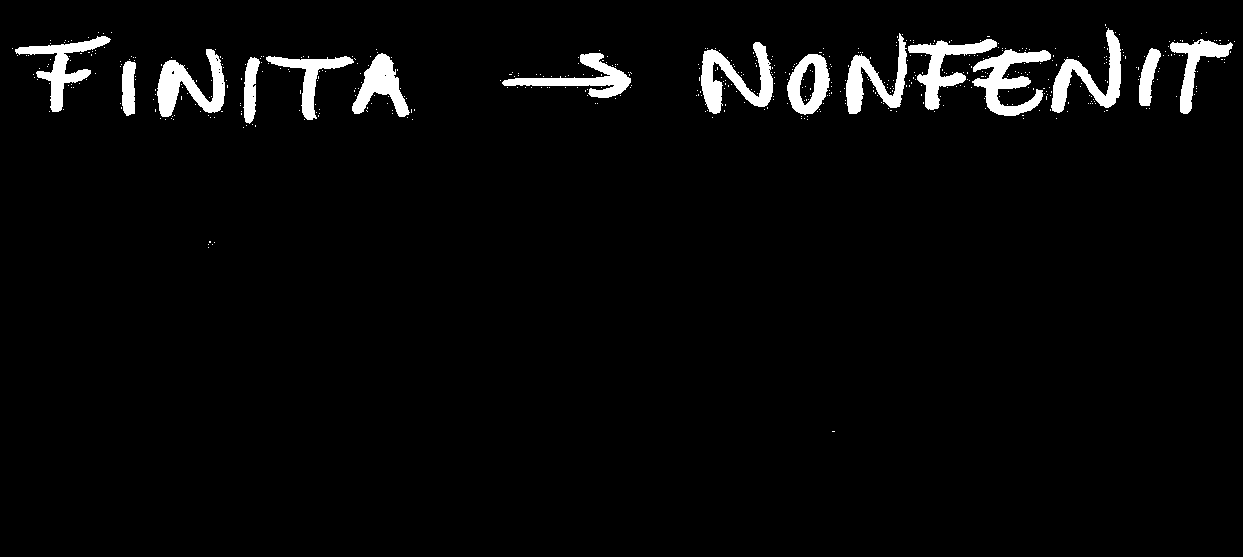 FINITA → NONFENIT